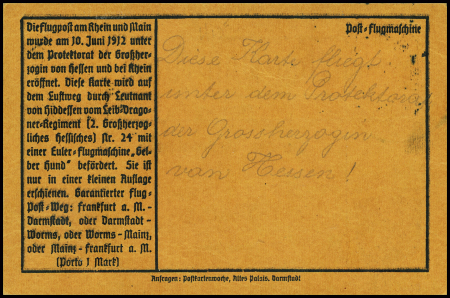 Die Flugpost am Rhein und Main
wurde am 10. Juni 1912 unter
dem Protektorat der Großher-
zogin von Hessen und bei Rhein
eröffnet. Diese Karte wird auf
dem Luftweg durch Leutnant
von Hiddessen vom Leib-Drago-
ner-Regiment (2. Großherzog-
liches Hessisches) Nr. 24 mit
einer Euler-Flugmaschine „Gel-
ber Hund" befördert. Sie ist
nur in einer kleinen Auflage
erschienen. Garantierter Flug-
Post-Weg: Frankfurt a. M.-
Darmstadt, oder Darmstadt-
Worms, oder Worms-Mainz,
oder Mainz-Frankfurt a. M.
(Porto 1 Mark)
Post-Flugmaschine
Diese Karte fliegt
unter dem Protektorat
der Grossherzogin
von Hessen!
Anfragen: Postkartenwoche, Altes Palais, Darmstadt